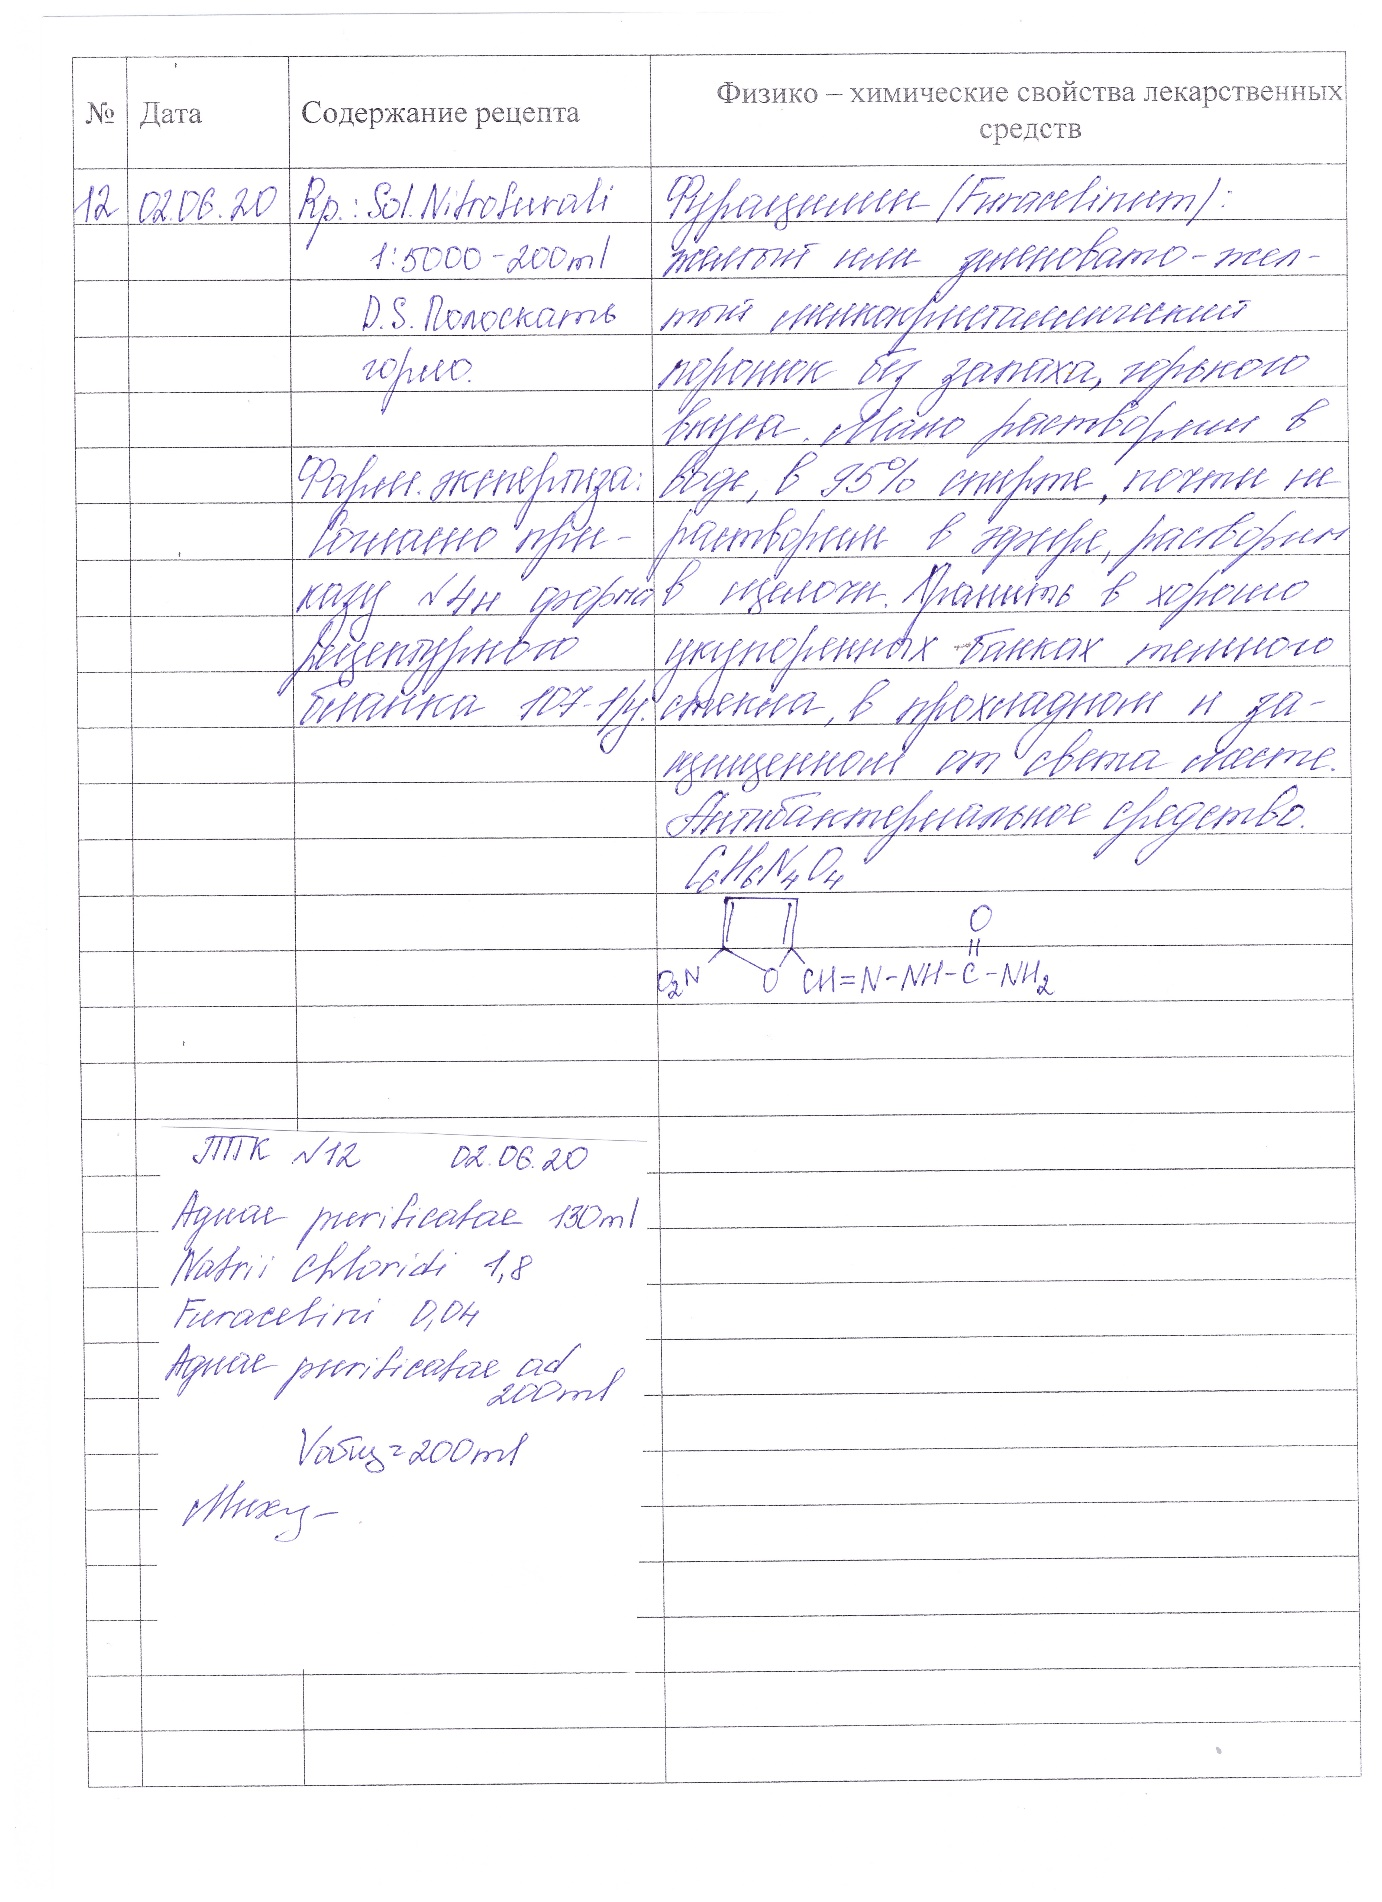 № Дата Содержание рецепта Физико – химические свойства лекарственных
средств
12 02.06.20 Rp.: Sol. Nitrofurali
1:5000 - 200ml
D.S. Полоскать
горло.
Фарм. экспертиза:
Согласно при-
казу №4н форма
рецептурного
бланка 107-1/у.
Фурацилин (Furacelinum):
желтый или зеленовато-жел-
тый мелкокристаллический
порошок без запаха, горького
вкуса. Мало растворим в
воде, в 95% спирте, почти не
растворим в эфире, растворим
в щелочи. Хранить в хорошо
укупоренных банках темного
стекла, в прохладном и за-
щищенном от света месте.
Антибактериальное средство.
C6H6N4O4
O
O2N O CH=N-NH-C-NH2
ППК №12 02.06.20
Aquae purificatae 130ml
Natrii chloridi 1,8
Furacelini 0,04
Aquae purificatae ad
200ml
Vобщ=200ml